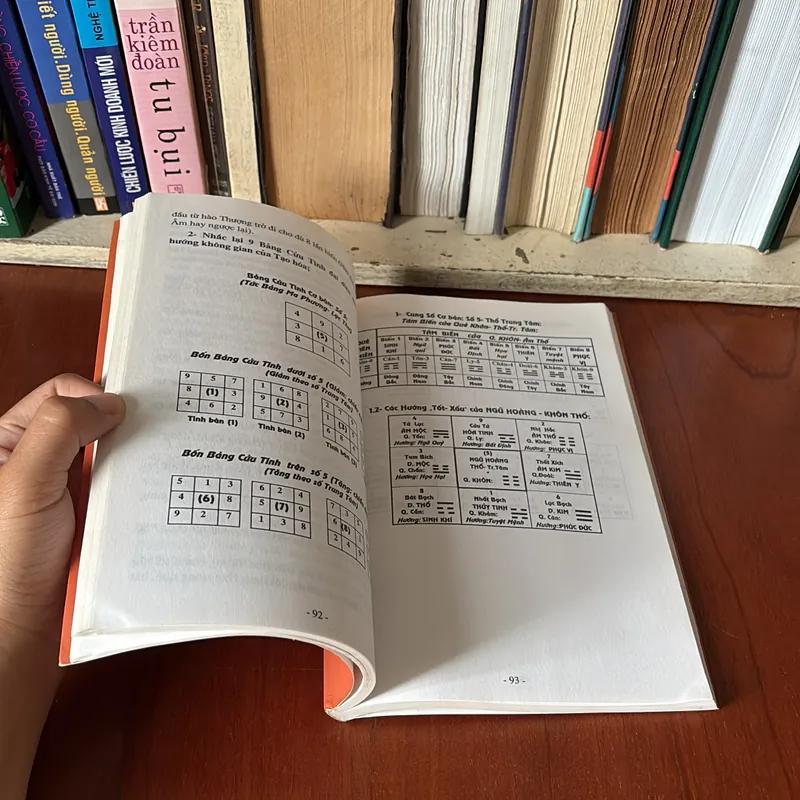 CHIẾN LƯỢC CƠ CẤU
Biết người. Dùng người. Quản người
NGHỆ
CHIẾN LƯỢC KINH DOANH MỚI
trần
kiêm
đoàn
tu bụi
đầu từ hào Thượng trở đi cho đủ 8 lần biến
Âm hay ngược lại).
2- Nhắc lại 9 Bảng Cửu Tinh đại
hướng không gian của Tạo hóa:
Bảng Cửu Tinh Cơ bản- Số 5
(Tức Bảng Ma Phương- Lạc Thư)
4 9 2
3 (5) 7
8 1 6
Bốn Bảng Cửu Tinh dưới số 5 (Giảm,
(Giảm theo số Trung
9 5 7
8 (1) 3
4 6 2
1 8
9 (2) 4
5 7 3
Tinh bàn (1) Tinh bàn (2) Tinh bàn (3)
Bốn Bảng Cửu Tinh trên số 5 (Tăng,
(Tăng theo số Trung
5 1 3
4 (6) 8
9 2 7
6 2 4
5 (7) 9
1 3 8
7 3 5
6 (8)
2 4
- 92 -
1- Cung Số Cơ bản: Số 5- Thổ Trung Tâm:
Tám Biến của Quẻ Khôn- Thổ-Tr. Tâm:
TÁM BIẾN CỦA Q. KHÔN- ÂM THỔ
Biến 1 Biến 2 Biến 3 Biến 4 Biến 5 Biến 6 Biến 7 Biến 8
SINH KHÍ Ngũ quỉ PHÚC ĐỨC Bất Định Họa hại THIÊN Y Tuyệt mệnh PHỤC VỊ
Cấn-1 Tốn-3 Ly-5 Khôn-8
Đông Bắc Đông Nam Tây Bắc Chính Nam Chính Đông Chính Tây Chính Bắc Tây Nam
1.2- Các Hướng „Tốt- Xấu' của NGŨ HOÀNG - KHÔN THỔ:
4 9 2
Tứ Lục Cửu Tử Nhị Hắc
ÂM MỘC HỎA TINH ÂM THỔ
Q. Tốn: Q. Ly: Q. Khôn:
Hướng: Ngũ Quỷ Hướng: Bất Định Hướng: PHỤC VỊ
3 (5) 7
Tam Bích NGŨ HOÀNG Thất Xích
D. MỘC THỔ- Tr.Tâm ÂM KIM
Q. Chấn: Q. KHÔN: Q.Đoài:
Hướng: Họa Hại Hướng: THIÊN Y
8 1 6
Bát Bạch Nhất Bạch Lục Bạch
D. THỔ THỦY TINH D. KIM
Q. Cấn: Q. Khảm: Q. Càn:
Hướng: SINH KHÍ Hướng:Tuyệt Mệnh Hướng:PHÚC ĐỨC
- 93 -